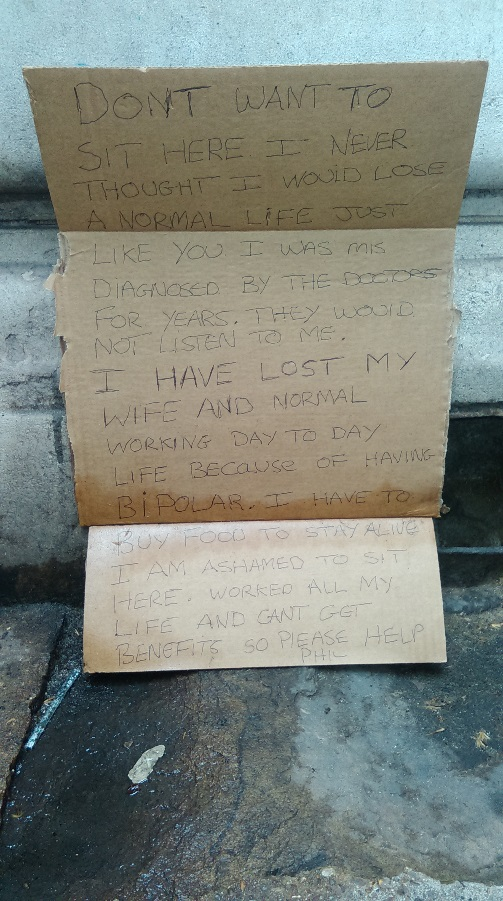 DONT WANT TO
SIT HERE I NEVER
THOUGHT I WOULD LOSE
A NORMAL LiFE JUST
LIKE YOU I WAS MIS
DIAGNOSED BY THE DOCTORS
FOR YEARS. THEY WOULD
NOT LISTEN TO ME.
I HAVE LOST MY
WIFE AND NORMAL
WORKING DAY TO DAY
LIFE BECAUSE OF HAVING
BiPOLAR. I HAVE TO
BUY FOOD TO STAY ALIVE
I AM ASHAMED TO SIT
HERE. WORKED ALL MY
LIFE AND CANT GET
BENEFITS SO PLEASE HELP
PHIL